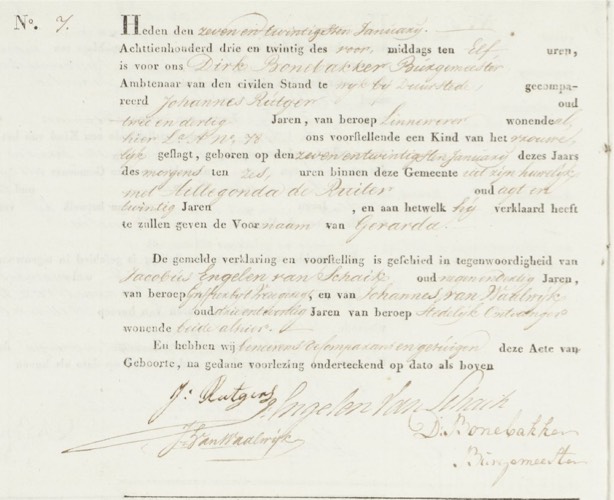 N.º 7. Heden den zeven en twintigsten January
Achttienhonderd drie en twintig des voor, middags ten Elf uren,
is voor ons Dirk Bonebakker Burgemeester
Ambtenaar van den civilen Stand te wyk by Duurstede, gecompa-
reerd Johannes Rutger oud
twee en dertig Jaren, van beroep Linnewever wonende
hier L.ª A Nº 78 ons voorstellende een Kind van het vrouwe-
lyk geslagt, geboren op den zeven en twintigsten January dezes Jaars
des morgens ten zes, uren binnen deze Gemeente uit zyn huwelyk
met Hillegonda de Ruiter oud agt en
twintig Jaren , en aan hetwelk hy verklaard heeft
te zullen geven de Voornaam van Gerarda
De gemelde verklaring en voorstelling is geschied in tegenwoordigheid van
Jacobus Engelen van Schaik oud Jaren,
van beroep en van Johannes van Waalwyk
oud Jaren van beroep Stedelyk Ontvanger
wonende beide alhier
En hebben wij benevens de Comparant en getuigen deze Acte van
Geboorte, na gedane voorlezing onderteekend op dato als boven
J: Rutgers J Engelen Van Schaik
J. Van Waalwyk D. Bonebakker
Burgemeester